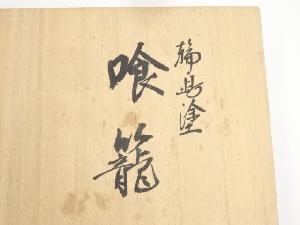 輪島塗
喰籠